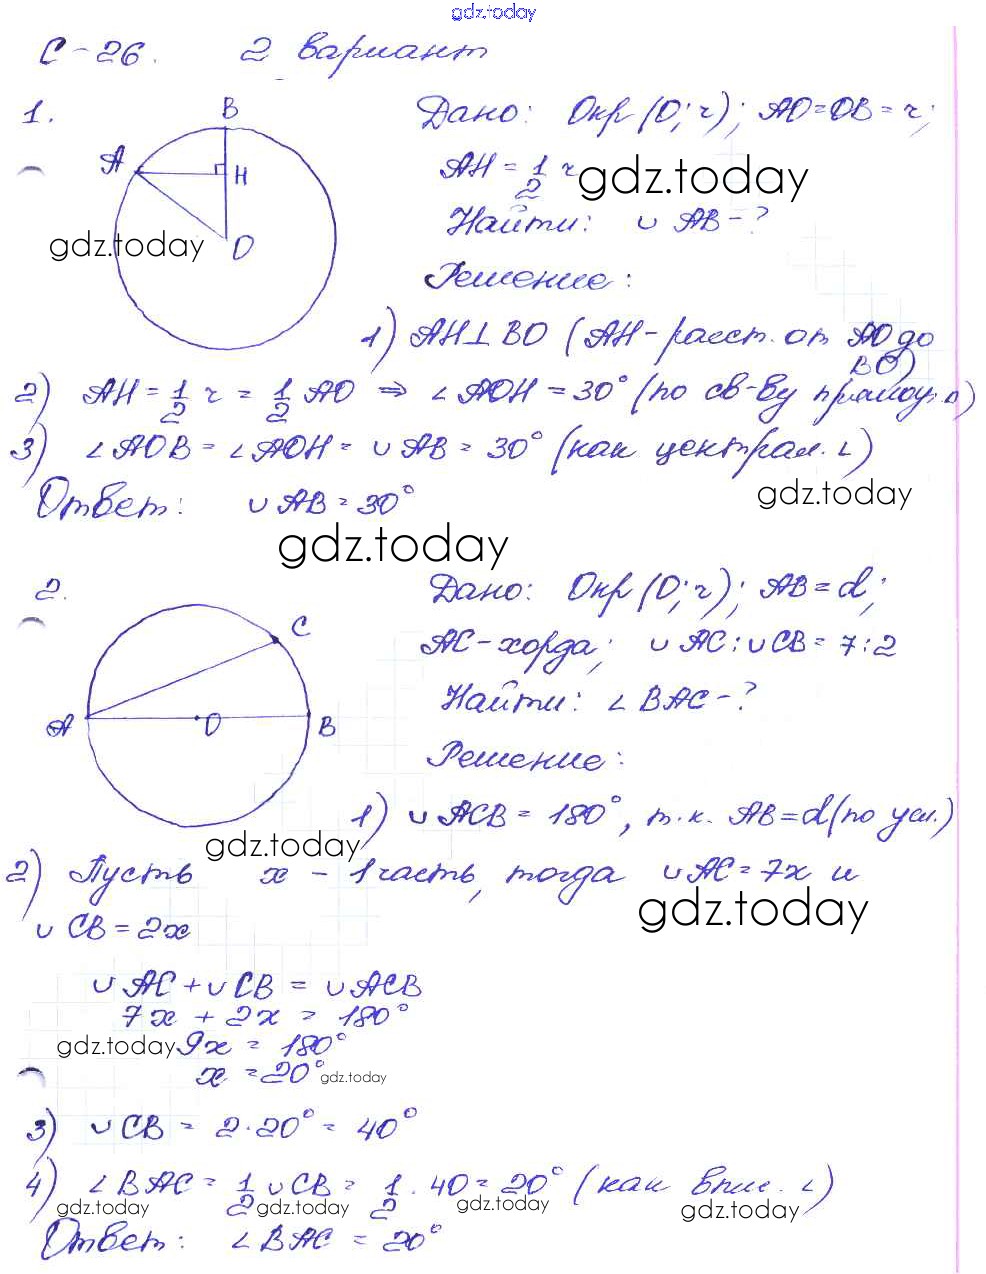 gdz.today
С-26. 2 вариант
1.
B
A
H
O
gdz.today
Дано: Окр (O; r); AO=OB=r;
AH = 1/2 r
gdz.today
Найти: ∪ AB-?
Решение:
1) AH⊥BO (AH-расст. от AO до BO)
2) AH = 1/2 r = 1/2 AO ⇒ ∠AOH = 30° (по св-ву прямоуг. Δ)
3) ∠AOB = ∠AOH = ∪AB = 30° (как централ. ∠)
Ответ: ∪ AB = 30°
gdz.today
gdz.today
2.
C
A
O
B
Дано: Окр (O; r); AB = d;
AC-хорда; ∪ AC : ∪ CB = 7:2
Найти: ∠ BAC-?
Решение:
1) ∪ ACB = 180°, т.к. AB=d (по усл.)
gdz.today
2) Пусть x - 1 часть, тогда ∪ AC = 7x и
∪ CB = 2x
gdz.today
∪ AC + ∪ CB = ∪ ACB
7x + 2x = 180°
gdz.today 9x = 180°
x = 20° gdz.today
3) ∪ CB = 2·20° = 40°
4) ∠ BAC = 1/2 ∪ CB = 1/2 · 40 = 20° (как впис. ∠)
gdz.today gdz.today gdz.today gdz.today
Ответ: ∠ BAC = 20°